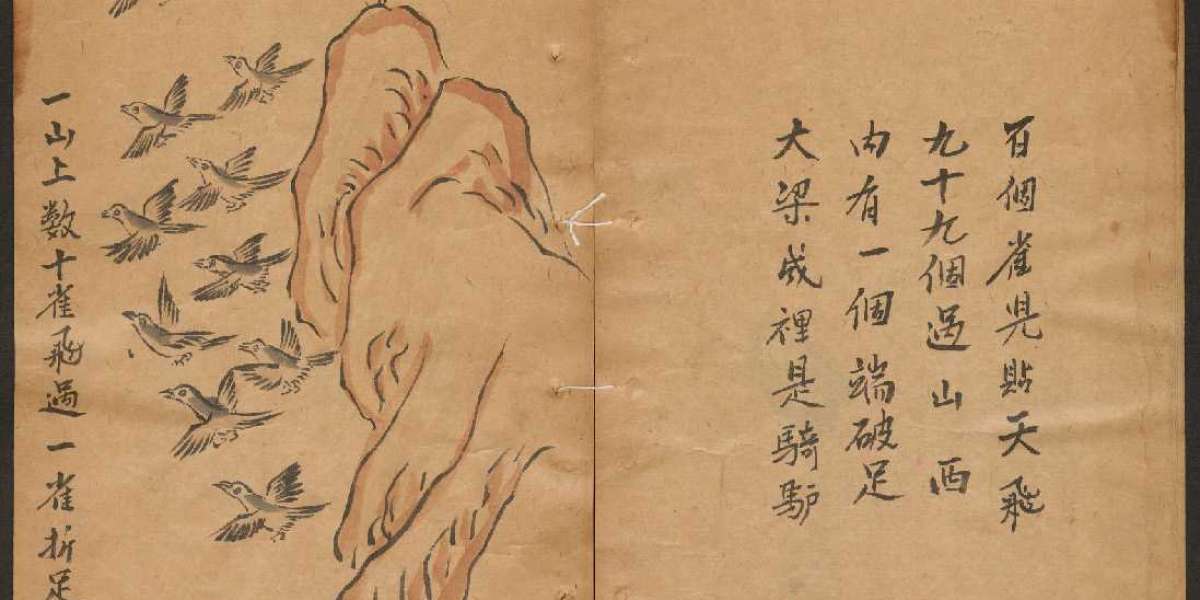 百個雀児貼天飛
九十九個過山西
内有一個端破足
大梁成裡是騎馿
一山上数十雀飛過一雀折足